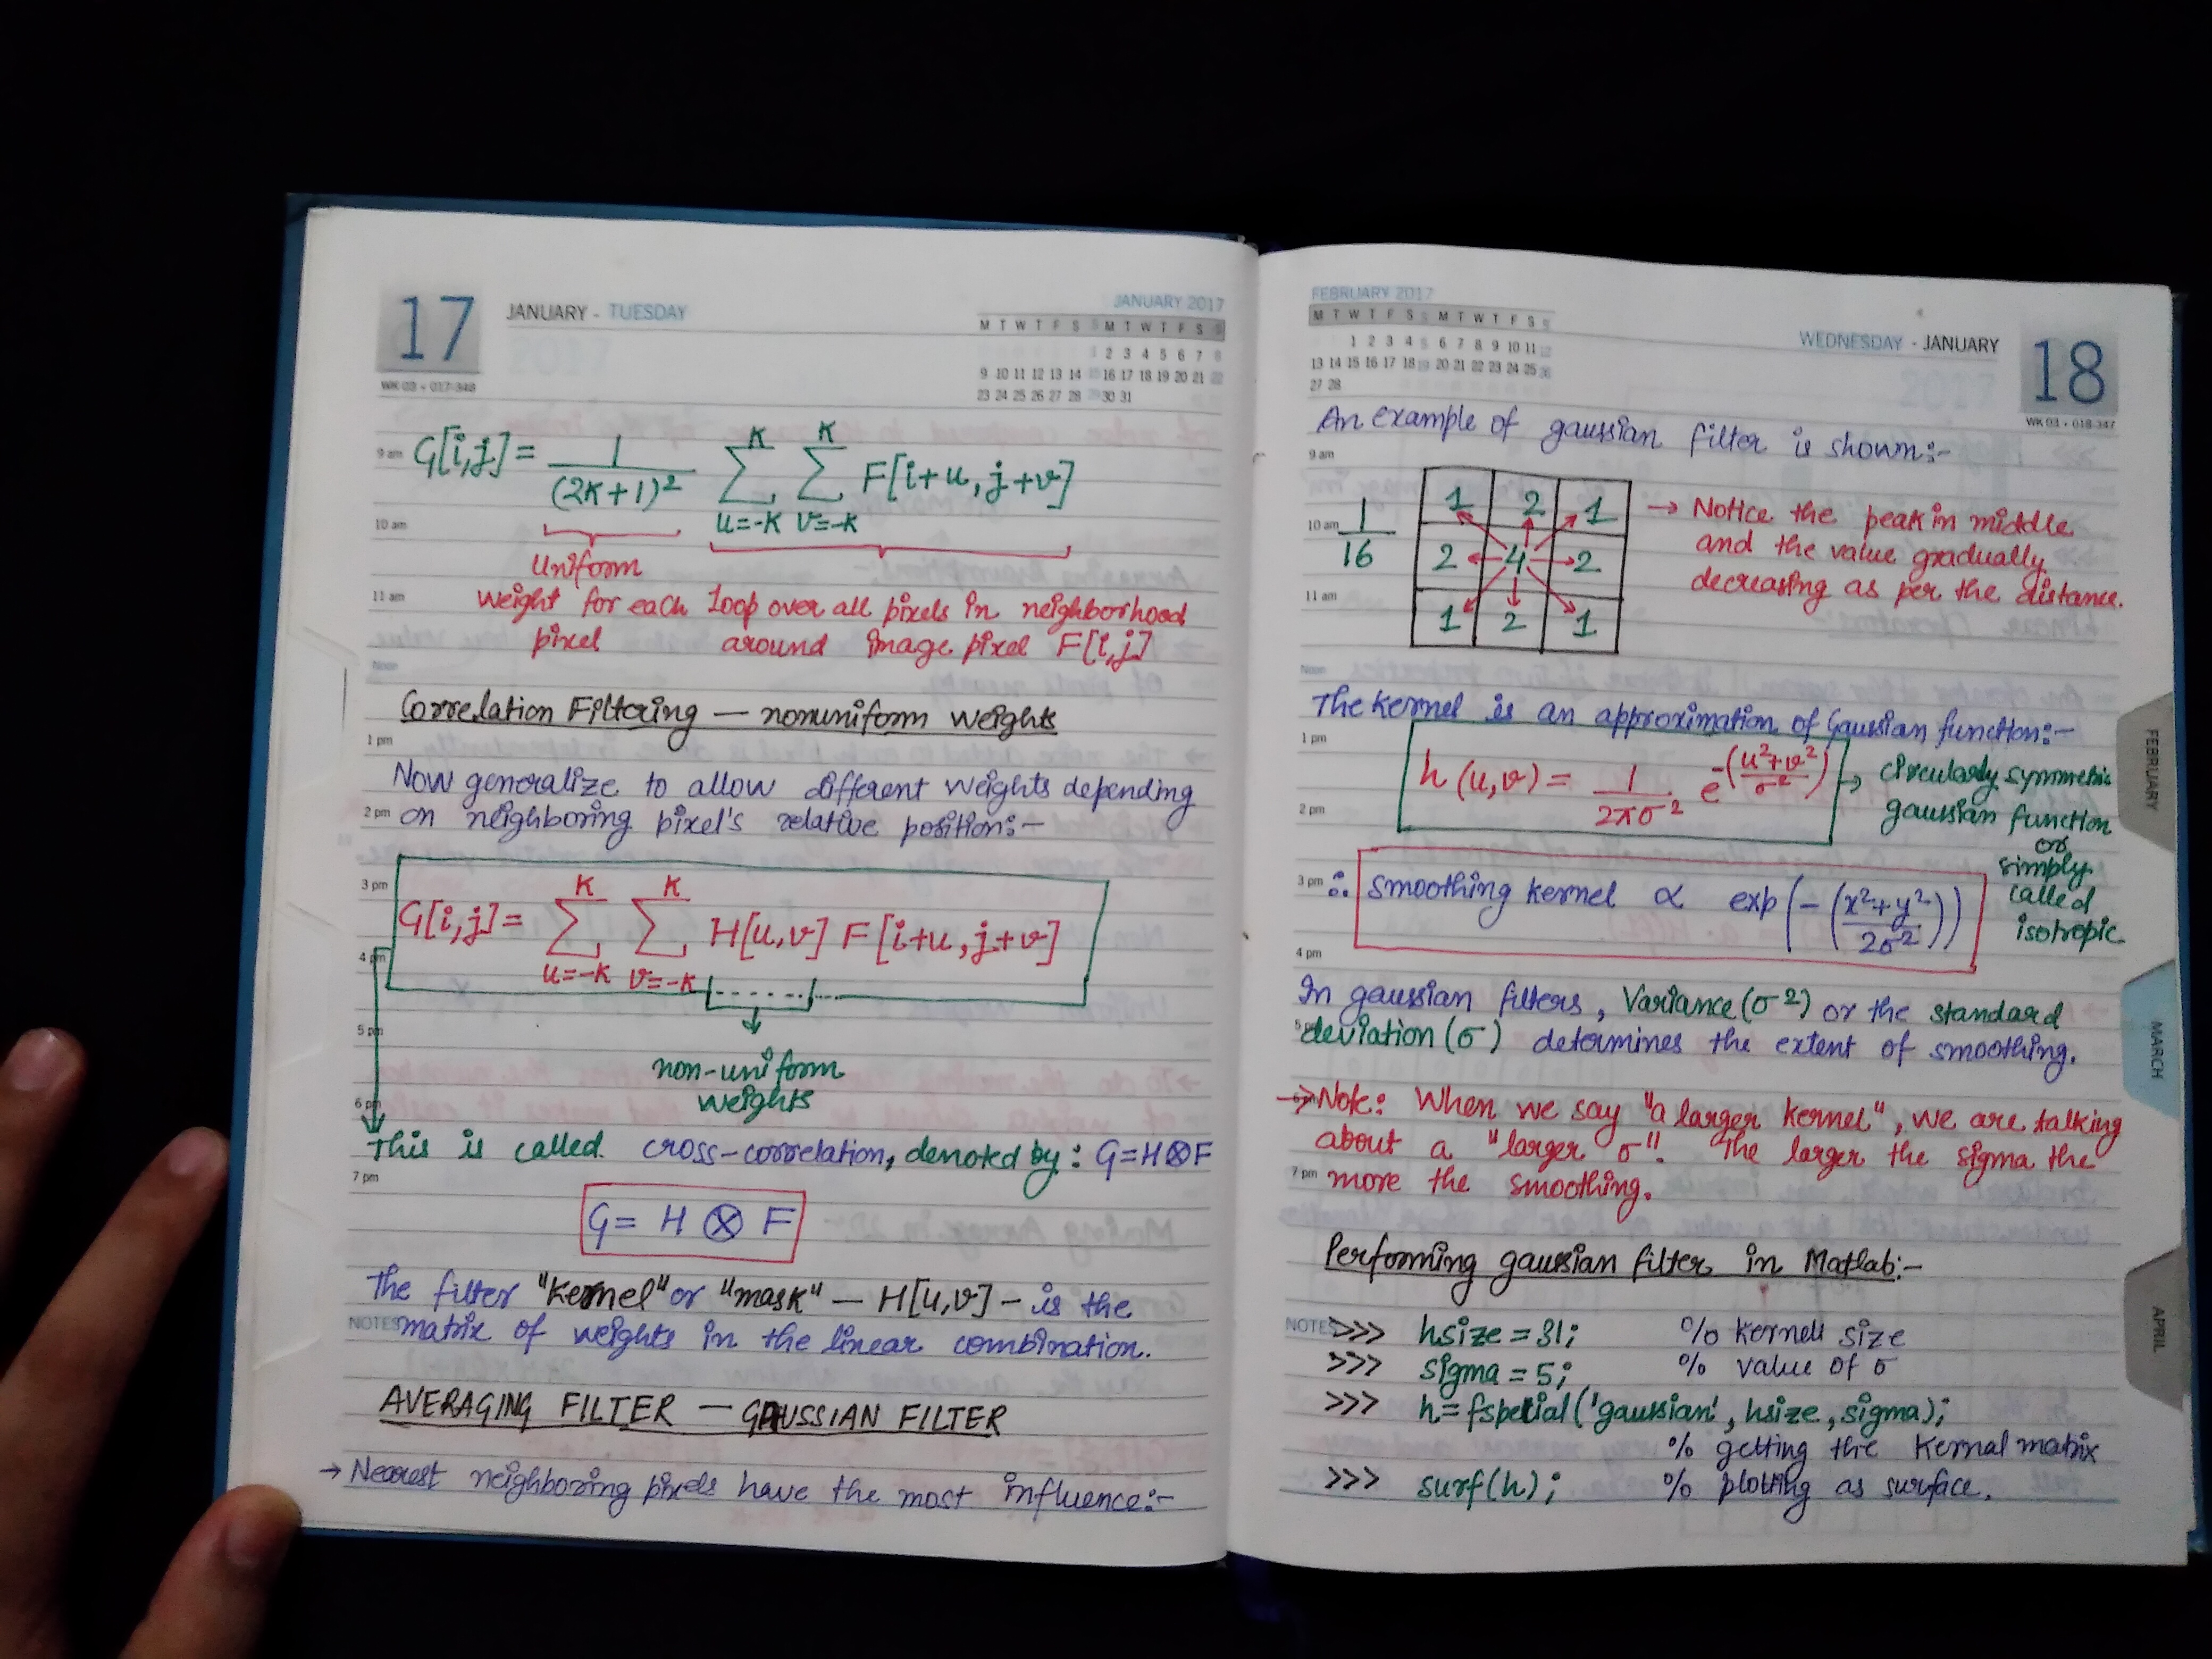 17
JANUARY - TUESDAY
WK 03 • 017-348
JANUARY 2017
M T W T F S S M T W T F S S
1 2 3 4 5 6 7 8
9 10 11 12 13 14 15 16 17 18 19 20 21 22
23 24 25 26 27 28 29 30 31
9 am
G[i,j] = 1/(2K+1)² ∑ᴷ_{u=-K} ∑ᴷ_{v=-K} F[i+u, j+v]
10 am
uniform
11 am
weight for each Loop over all pixels in neighborhood
pixel around image pixel F[i,j]
Noon
Correlation Filtering — nonuniform weights
1 pm
Now generalize to allow different weights depending
2 pm
on neighboring pixel's relative position:-
3 pm
G[i,j] = ∑ᴷ_{u=-K} ∑ᴷ_{v=-K} H[u,v] F[i+u, j+v]
4 pm
5 pm
non-uniform
weights
6 pm
This is called cross-correlation, denoted by: G=H⊗F
7 pm
G = H ⊗ F
The filter "kernel" or "mask" — H[u,v] - is the
NOTES
matrix of weights in the linear combination.
AVERAGING FILTER — GAUSSIAN FILTER
→ Nearest neighboring pixels have the most influence:-
FEBRUARY 2017
M T W T F S S M T W T F S S
1 2 3 4 5 6 7 8 9 10 11 12
13 14 15 16 17 18 19 20 21 22 23 24 25 26
27 28
WEDNESDAY - JANUARY
18
WK 03 • 018-347
An example of gaussian filter is shown:-
9 am
10 am
1/16
1 2 1
2 4 2
1 2 1
→ Notice the peak in middle
and the value gradually
decreasing as per the distance.
11 am
Noon
The kernel is an approximation of Gaussian function:-
1 pm
h(u,v) = 1/2πσ² e^-(u²+v²/σ²)
→ circularly symmetric
gaussian function
or
simply
called
isotropic
2 pm
3 pm
∴ smoothing kernel α exp(-(x²+y²/2σ²))
4 pm
In gaussian filters, Variance(σ²) or the standard
5 pm
deviation(σ) determines the extent of smoothing.
6 pm
→ Note: When we say "a larger kernel", we are talking
about a "larger σ". The larger the sigma the
7 pm
more the smoothing.
Performing gaussian filter in Matlab:-
NOTES
>>> hsize = 31; % kernel size
>>> sigma = 5; % value of σ
>>> h = fspecial('gaussian', hsize, sigma);
% getting the kernal matrix
>>> surf(h); % plotting as surface.
FEBRUARY
MARCH
APRIL